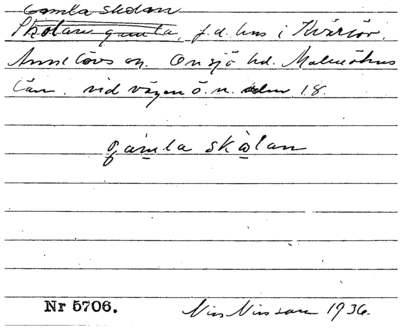 Gamla skolan
Skolan gamla, f.d. hus i Kvärlöv,
Annelövs sn. Onsjö hd. Malmöhus
län. vid vägen ö. n. 18.
gamla skolan
Nr 5706. Nils Nilsson 1936.